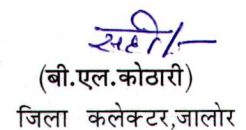 सही/-
(बी.एल.कोठारी)
जिला कलेक्टर,जालोर